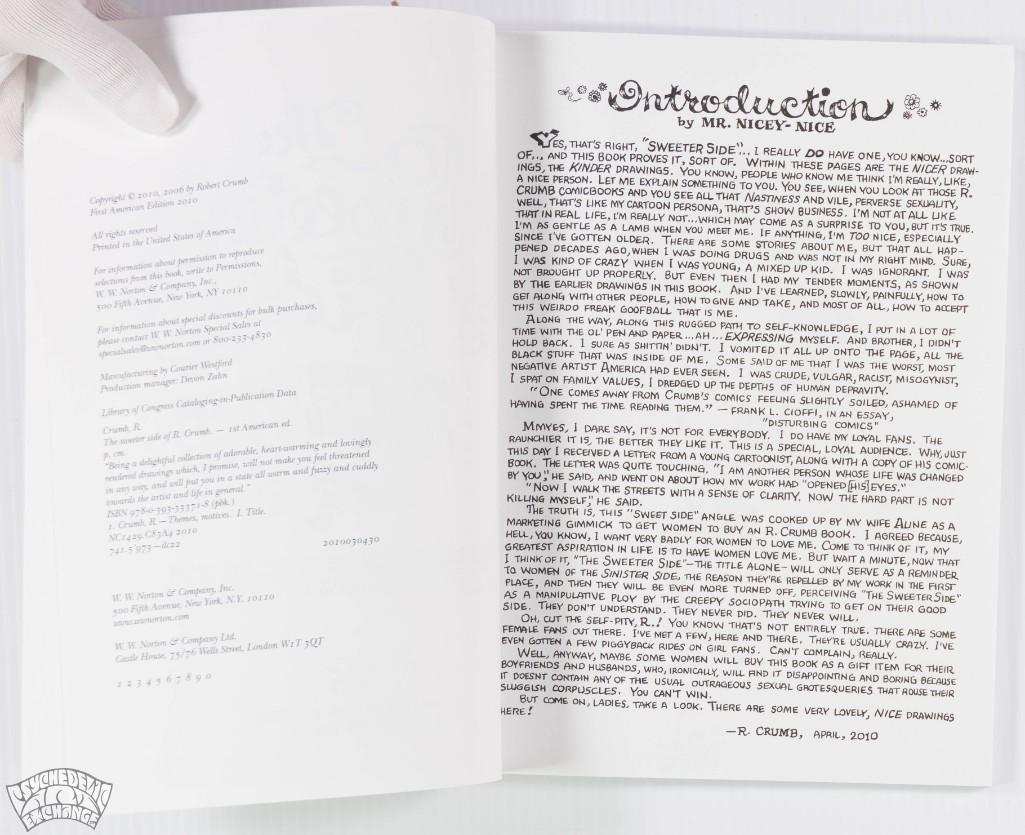 Copyright © 2010, 2006 by Robert Crumb
First American Edition 2010
All rights reserved
Printed in the United States of America
For information about permission to reproduce
selections from this book, write to Permissions,
W. W. Norton & Company, Inc.,
500 Fifth Avenue, New York, NY 10110
For information about special discounts for bulk purchases,
please contact W. W. Norton Special Sales at
specialsales@wwnorton.com or 800-233-4830
Manufacturing by Courier Westford
Production manager: Devon Zahn
Library of Congress Cataloging-in-Publication Data
Crumb, R.
The sweeter side of R. Crumb. — 1st American ed.
p. cm.
"Being a delightful collection of adorable, heart-warming and lovingly
rendered drawings which, I promise, will not make you feel threatened
in any way, and will put you in a state all warm and fuzzy and cuddly
towards the artist and life in general."
ISBN 978-0-393-33371-8 (pbk.)
1. Crumb, R. — Themes, motives. I. Title.
NC1429.C83A4 2010
741.5'973—dc22
2010030430
W. W. Norton & Company, Inc.
500 Fifth Avenue, New York, N.Y. 10110
www.wwnorton.com
W. W. Norton & Company Ltd.
Castle House, 75/76 Wells Street, London W1T 3QT
1 2 3 4 5 6 7 8 9 0
Introduction
by MR. NICEY-NICE
YES, THAT'S RIGHT, "SWEETER SIDE"... I REALLY DO HAVE ONE, YOU KNOW...SORT
OF... AND THIS BOOK PROVES IT, SORT OF. WITHIN THESE PAGES ARE THE NICER DRAW-
INGS, THE KINDER DRAWINGS. YOU KNOW, PEOPLE WHO KNOW ME THINK I'M REALLY, LIKE,
A NICE PERSON. LET ME EXPLAIN SOMETHING TO YOU. YOU SEE, WHEN YOU LOOK AT THOSE R.
CRUMB COMICBOOKS AND YOU SEE ALL THAT NASTINESS AND VILE, PERVERSE SEXUALITY,
WELL, THAT'S LIKE MY CARTOON PERSONA, THAT'S SHOW BUSINESS. I'M NOT AT ALL LIKE
THAT IN REAL LIFE, I'M REALLY NOT...WHICH MAY COME AS A SURPRISE TO YOU, BUT IT'S TRUE.
I'M AS GENTLE AS A LAMB WHEN YOU MEET ME. IF ANYTHING, I'M TOO NICE, ESPECIALLY
SINCE I'VE GOTTEN OLDER. THERE ARE SOME STORIES ABOUT ME, BUT THAT ALL HAP-
PENED DECADES AGO, WHEN I WAS DOING DRUGS AND WAS NOT IN MY RIGHT MIND. SURE,
I WAS KIND OF CRAZY WHEN I WAS YOUNG, A MIXED UP KID. I WAS IGNORANT. I WAS
NOT BROUGHT UP PROPERLY. BUT EVEN THEN I HAD MY TENDER MOMENTS, AS SHOWN
BY THE EARLIER DRAWINGS IN THIS BOOK. AND I'VE LEARNED, SLOWLY, PAINFULLY, HOW TO
GET ALONG WITH OTHER PEOPLE, HOW TO GIVE AND TAKE, AND MOST OF ALL, HOW TO ACCEPT
THIS WEIRDO FREAK GOOFBALL THAT IS ME.
ALONG THE WAY, ALONG THIS RUGGED PATH TO SELF-KNOWLEDGE, I PUT IN A LOT OF
TIME WITH THE OL' PEN AND PAPER...AH...EXPRESSING MYSELF. AND BROTHER, I DIDN'T
HOLD BACK. I SURE AS SHITTIN' DIDN'T. I VOMITED IT ALL UP ONTO THE PAGE, ALL THE
BLACK STUFF THAT WAS INSIDE OF ME. SOME SAID OF ME THAT I WAS THE WORST, MOST
NEGATIVE ARTIST AMERICA HAD EVER SEEN. I WAS CRUDE, VULGAR, RACIST, MISOGYNIST,
I SPAT ON FAMILY VALUES, I DREDGED UP THE DEPTHS OF HUMAN DEPRAVITY.
"ONE COMES AWAY FROM CRUMB'S COMICS FEELING SLIGHTLY SOILED, ASHAMED OF
HAVING SPENT THE TIME READING THEM." — FRANK L. CIOFFI, IN AN ESSAY,
"DISTURBING COMICS"
MMYES, I DARE SAY, IT'S NOT FOR EVERYBODY. I DO HAVE MY LOYAL FANS. THE
RAUNCHIER IT IS, THE BETTER THEY LIKE IT. THIS IS A SPECIAL, LOYAL AUDIENCE. WHY, JUST
THIS DAY I RECEIVED A LETTER FROM A YOUNG CARTOONIST, ALONG WITH A COPY OF HIS COMIC-
BOOK. THE LETTER WAS QUITE TOUCHING. "I AM ANOTHER PERSON WHOSE LIFE WAS CHANGED
BY YOU," HE SAID, AND WENT ON ABOUT HOW MY WORK HAD "OPENED [HIS] EYES."
"NOW I WALK THE STREETS WITH A SENSE OF CLARITY. NOW THE HARD PART IS NOT
KILLING MYSELF," HE SAID.
THE TRUTH IS, THIS "SWEET SIDE" ANGLE WAS COOKED UP BY MY WIFE ALINE AS A
MARKETING GIMMICK TO GET WOMEN TO BUY AN R. CRUMB BOOK. I AGREED BECAUSE,
HELL, YOU KNOW, I WANT VERY BADLY FOR WOMEN TO LOVE ME. COME TO THINK OF IT, MY
GREATEST ASPIRATION IN LIFE IS TO HAVE WOMEN LOVE ME. BUT WAIT A MINUTE, NOW THAT
I THINK OF IT, "THE SWEETER SIDE"—THE TITLE ALONE— WILL ONLY SERVE AS A REMINDER
TO WOMEN OF THE SINISTER SIDE, THE REASON THEY'RE REPELLED BY MY WORK IN THE FIRST
PLACE, AND THEN THEY WILL BE EVEN MORE TURNED OFF, PERCEIVING "THE SWEETER SIDE"
AS A MANIPULATIVE PLOY BY THE CREEPY SOCIOPATH TRYING TO GET ON THEIR GOOD
SIDE. THEY DON'T UNDERSTAND. THEY NEVER DID. THEY NEVER WILL.
OH, CUT THE SELF-PITY, R.! YOU KNOW THAT'S NOT ENTIRELY TRUE. THERE ARE SOME
FEMALE FANS OUT THERE. I'VE MET A FEW, HERE AND THERE. THEY'RE USUALLY CRAZY. I'VE
EVEN GOTTEN A FEW PIGGYBACK RIDES ON GIRL FANS. CAN'T COMPLAIN, REALLY.
WELL, ANYWAY, MAYBE SOME WOMEN WILL BUY THIS BOOK AS A GIFT ITEM FOR THEIR
BOYFRIENDS AND HUSBANDS, WHO, IRONICALLY, WILL FIND IT DISAPPOINTING AND BORING BECAUSE
IT DOESNT CONTAIN ANY OF THE USUAL OUTRAGEOUS SEXUAL GROTESQUERIES THAT ROUSE THEIR
SLUGGISH CORPUSCLES. YOU CAN'T WIN.
BUT COME ON, LADIES, TAKE A LOOK. THERE ARE SOME VERY LOVELY, NICE DRAWINGS
HERE!
—R. CRUMB, APRIL, 2010
PSYCHEDELIC
ART
EXCHANGE